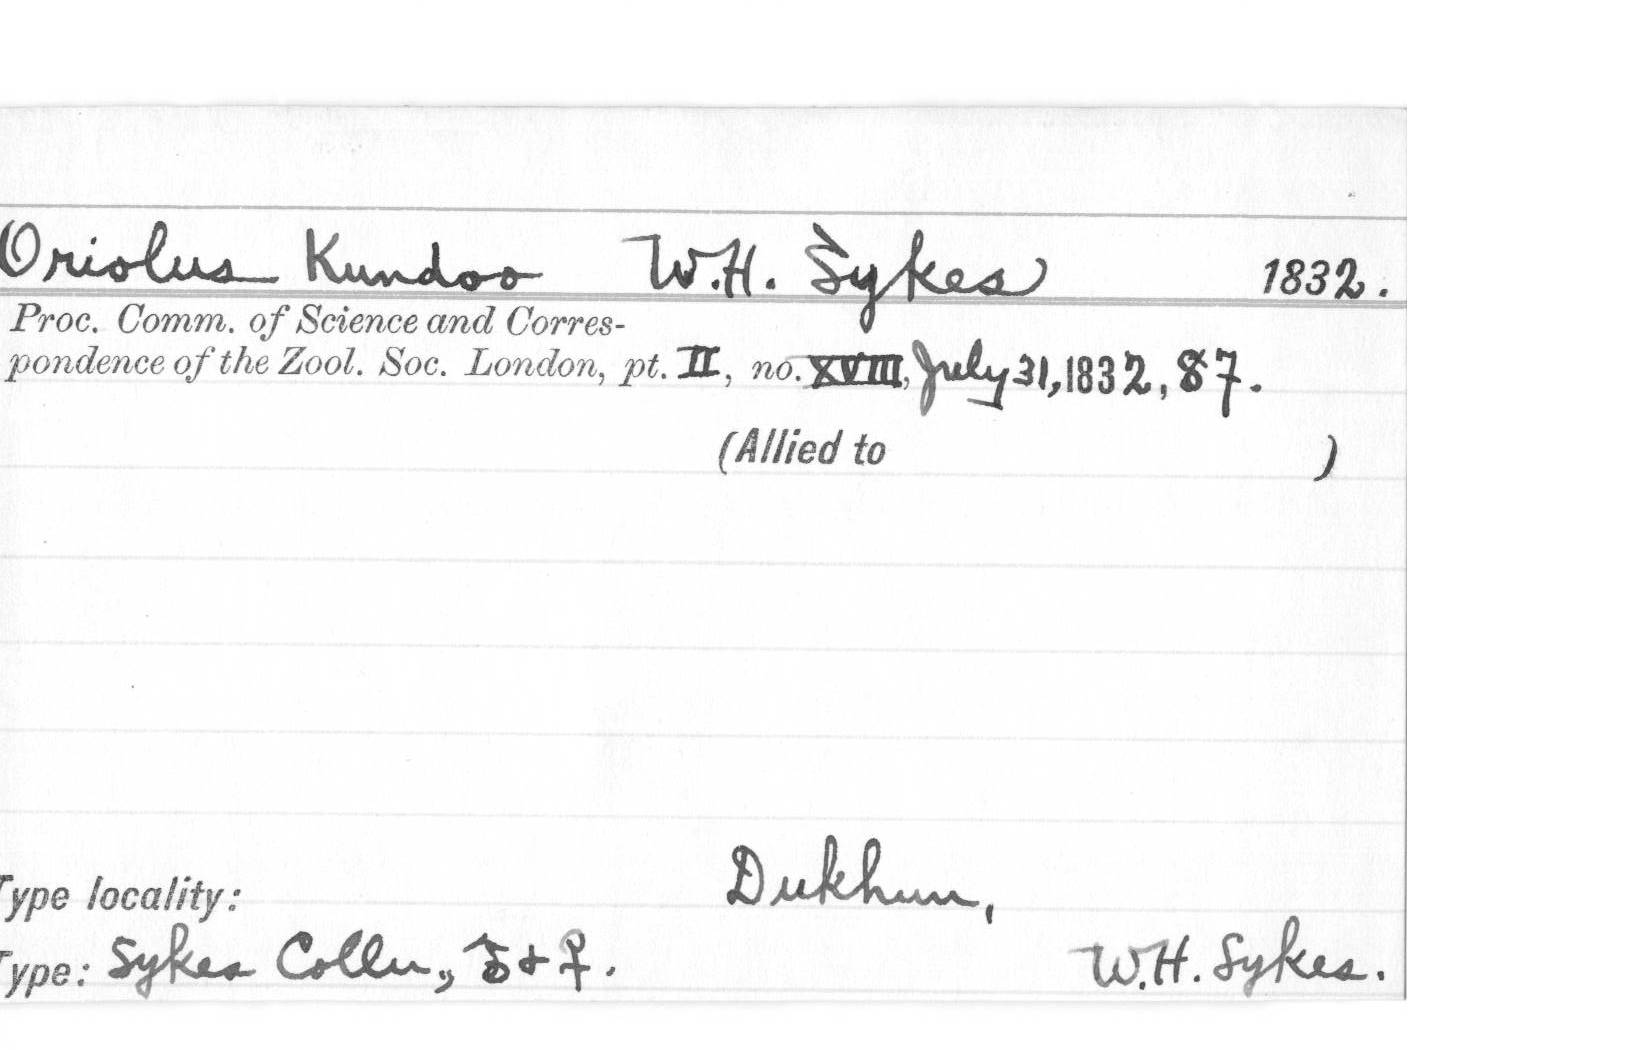 Oriolus Kundoo W.H. Sykes 1832.
Proc. Comm. of Science and Corres-
pondence of the Zool. Soc. London, pt. II, no. XVIII, July 31, 1832, 87.
(Allied to )
Dukhun,
Type locality:
Type: Sykes Colln., ♂ + ♀. W.H. Sykes.